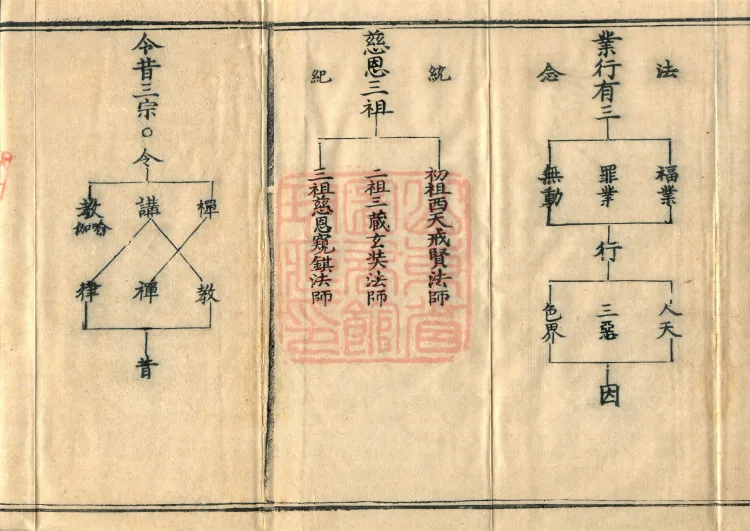 業行有三
法
念
福業
罪業
無動
行
人天
三惡
色界
因
慈恩三祖
統
紀
初祖西天戒賢法師
二祖三蔵玄奘法師
三祖慈恩窺錤法師
令昔三宗○令
禪
講
教
教
禪
律
昔